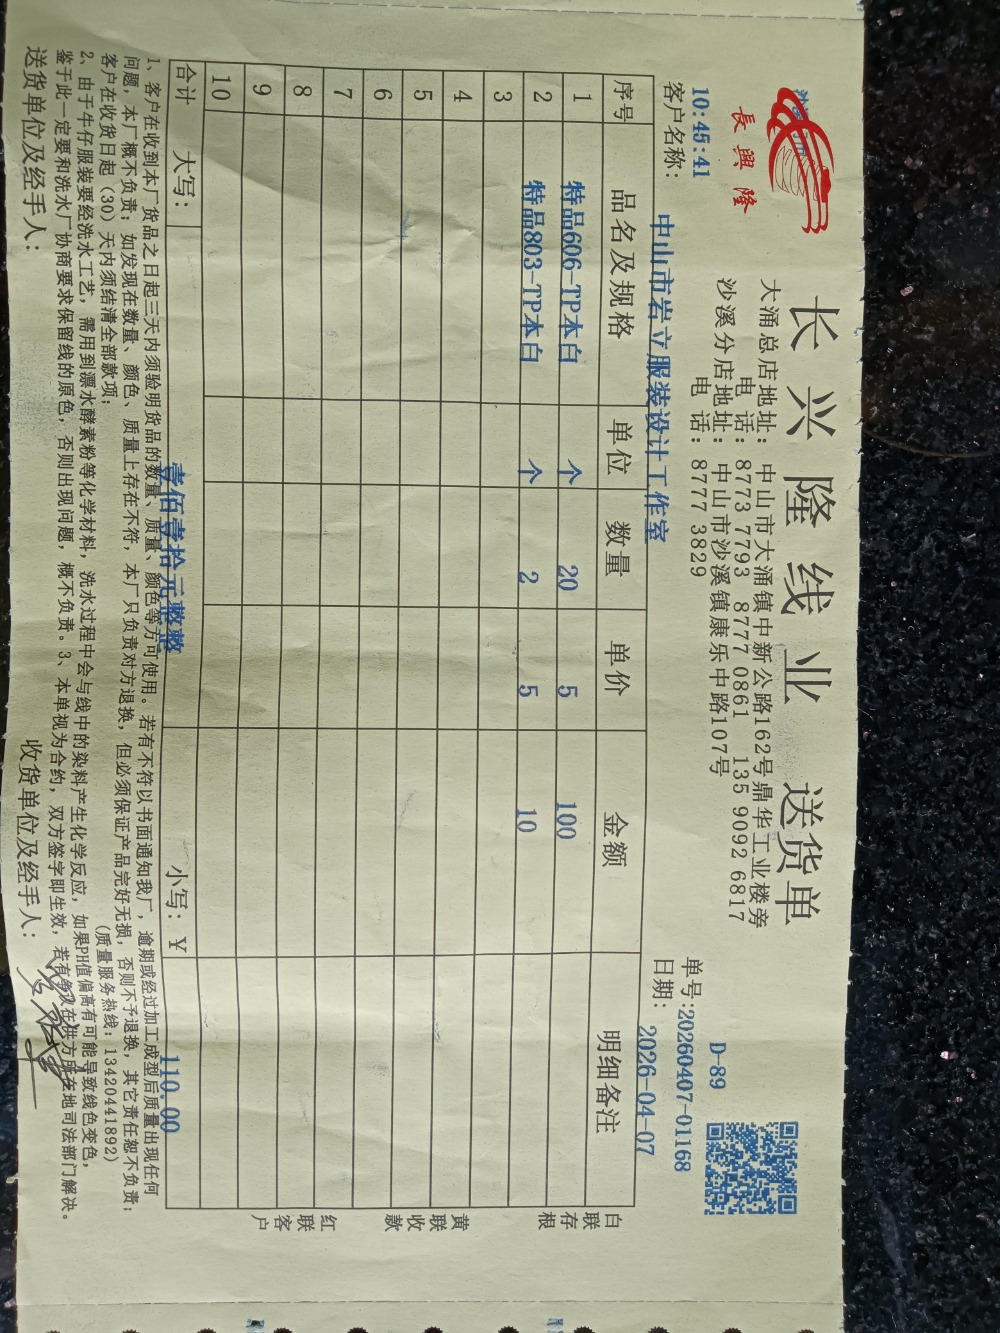 長興隆
长兴隆线业 送货单
大涌总店地址: 中山市大涌镇中新公路162号鼎华工业楼旁
电 话: 8773 7793 8777 0861 135 9092 6817
沙溪分店地址: 中山市沙溪镇康乐中路107号
电 话: 8777 3829
D-89
10:45:41
单号:20260407-01168
客户名称: 中山市岩立服装设计工作室
日期: 2026-04-07
序号 品名及规格 单位 数量 单价 金额 明细备注
1 特品606-TP本白 个 20 5 100
2 特品803-TP本白 个 2 5 10
3
4
5
6
7
8
9
10
合计 大写: 壹佰壹拾元整整 小写: ¥ 110.00
白联存根
黄联收款
红联客户
1、客户在收到本厂货品之日起三天内须验明货品的数量、质量、颜色等方可使用。若有不符以书面通知我厂,逾期或经过加工成型后质量出现任何
问题,本厂概不负责;如发现在数量、颜色、质量上存在不符,本厂只负责对方退换,但必须保证产品完好无损,否则不予退换,其它责任恕不负责;
客户在收货日起(30)天内须结清全部款项; (质量服务热线:13420441892)
2、由于牛仔服装要经洗水工艺,需用到漂水酵素粉等化学材料,洗水过程中会与线中的染料产生化学反应,如果PH值偏高有可能导致线色变色,
鉴于此一定要和洗水厂协商要求保留线的原色,否则出现问题,概不负责。3、本单视为合约,双方签字即生效,若有争议在供方所在地司法部门解决。
送货单位及经手人: 收货单位及经手人: